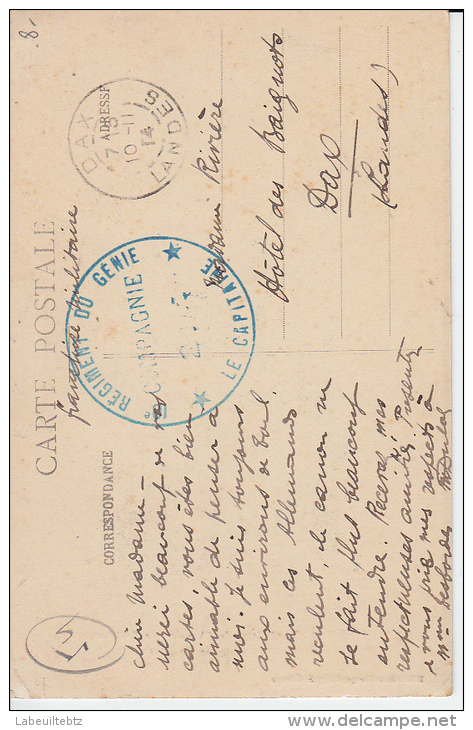 8.
CARTE POSTALE
franchise militaire
CORRESPONDANCE
ADRESSE
DAX
7 15
10 - 11
14
LANDES
RÉGIMENT DU GÉNIE
COMPAGNIE
LE CAPITAINE
Madame Rivière
Hôtel des Baignots
Dax
(Landes)
Chère Madame -
merci beaucoup de vos
cartes, vous êtes bien
aimable de penser à
moi. Je suis toujours
aux environs de Toul
mais ces Allemands
veulent, le canon ne
se fait plus beaucoup
entendre. Recevez mes
respectueuses amitiés. Présentez
je vous prie mes respects à
Mme Desbordes
Labeuiltebtz
delcampe.net